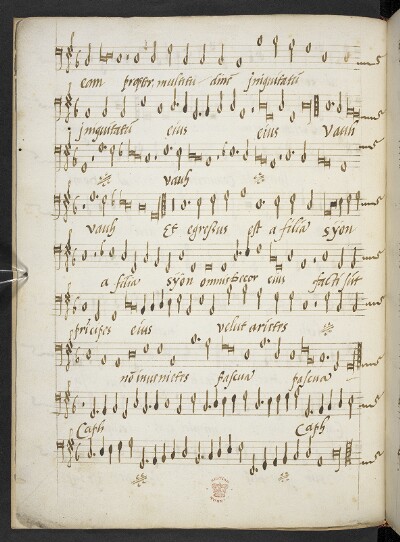 eam propter multitu dinē iniquitatū
iniquitatū eius eius Vauh
vauh
vauh Et egressus est a filia syon
a filia syon omnis decor eius facti sūt
prīcipes eius velut arietes
nō inuenietes pascua pascua
Caph Caph